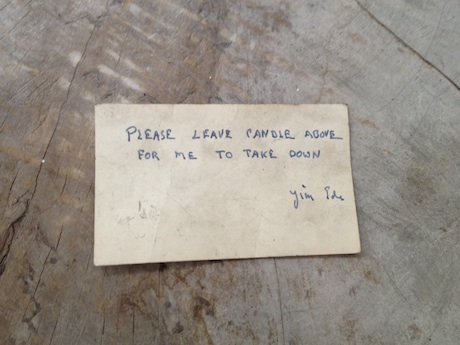 PLEASE LEAVE CANDLE ABOVE
FOR ME TO TAKE DOWN
Jim Ede